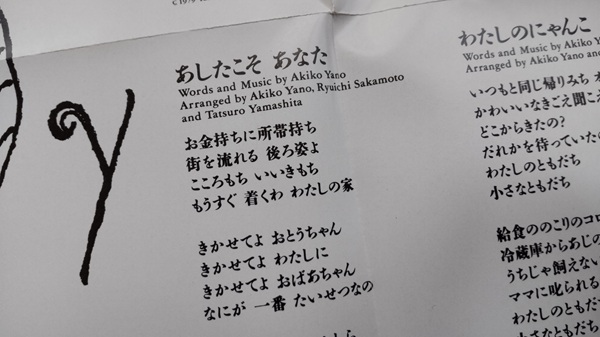 あしたこそ あなた
Words and Music by Akiko Yano
Arranged by Akiko Yano, Ryuichi Sakamoto
and Tatsuro Yamashita
お金持ちに所帯持ち
街を流れる 後ろ姿よ
こころもち いいきもち
もうすぐ 着くわ わたしの家
きかせてよ おとうちゃん
きかせてよ わたしに
きかせてよ おばあちゃん
なにが 一番 たいせつなの
わたしのにゃんこ
Words and Music by Akiko
Arranged by Akiko Yano and
いつもと同じ帰りみち
かわいいなきごえ聞こえ
どこからきたの?
だれかを待っていた
わたしのともだち
小さなともだち
給食ののこりのコロ
冷蔵庫からあじの
うちじゃ飼えない
ママに叱られる
わたしのともだ
小さなともだち
y